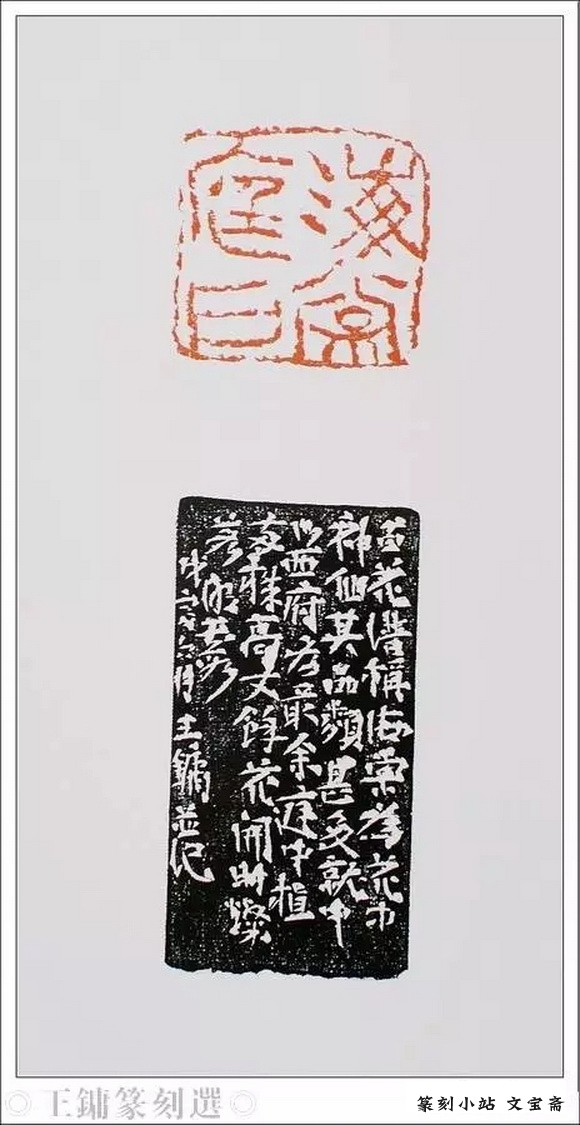 海棠
花譜稱海棠為花中
神仙其品類甚多就中
以西府為最余庭中植
株高丈餘花開時燦
若
六月王鏞並記
王鏞篆刻選
篆刻小站 文宝斋